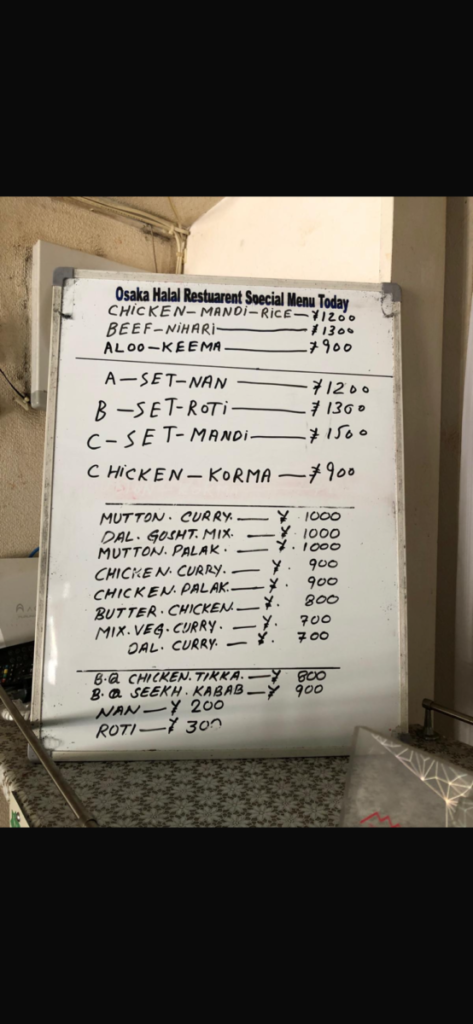 Osaka Halal Restuarent Soecial Menu Today
CHICKEN-MANDI-RICE-¥1200
BEEF-NIHARI-¥1300
ALOO-KEEMA-¥900
A-SET-NAN-¥1200
B-SET-ROTI-¥1300
C-SET-MANDI-¥1500
CHICKEN-KORMA-¥900
MUTTON. CURRY.-¥ 1000
DAL. GOSHT. MIX.-¥ 1000
MUTTON. PALAK.-¥. 1000
CHICKEN. CURRY.-¥. 900
CHICKEN. PALAK.-¥. 900
BUTTER. CHICKEN-¥. 800
MIX. VEG. CURRY.-¥. 700
DAL. CURRY.-¥. 700
B.Q CHICKEN. TIKKA.-¥ 800
B.Q SEEKH. KABAB-¥ 900
NAN-¥ 200
ROTI-¥ 300